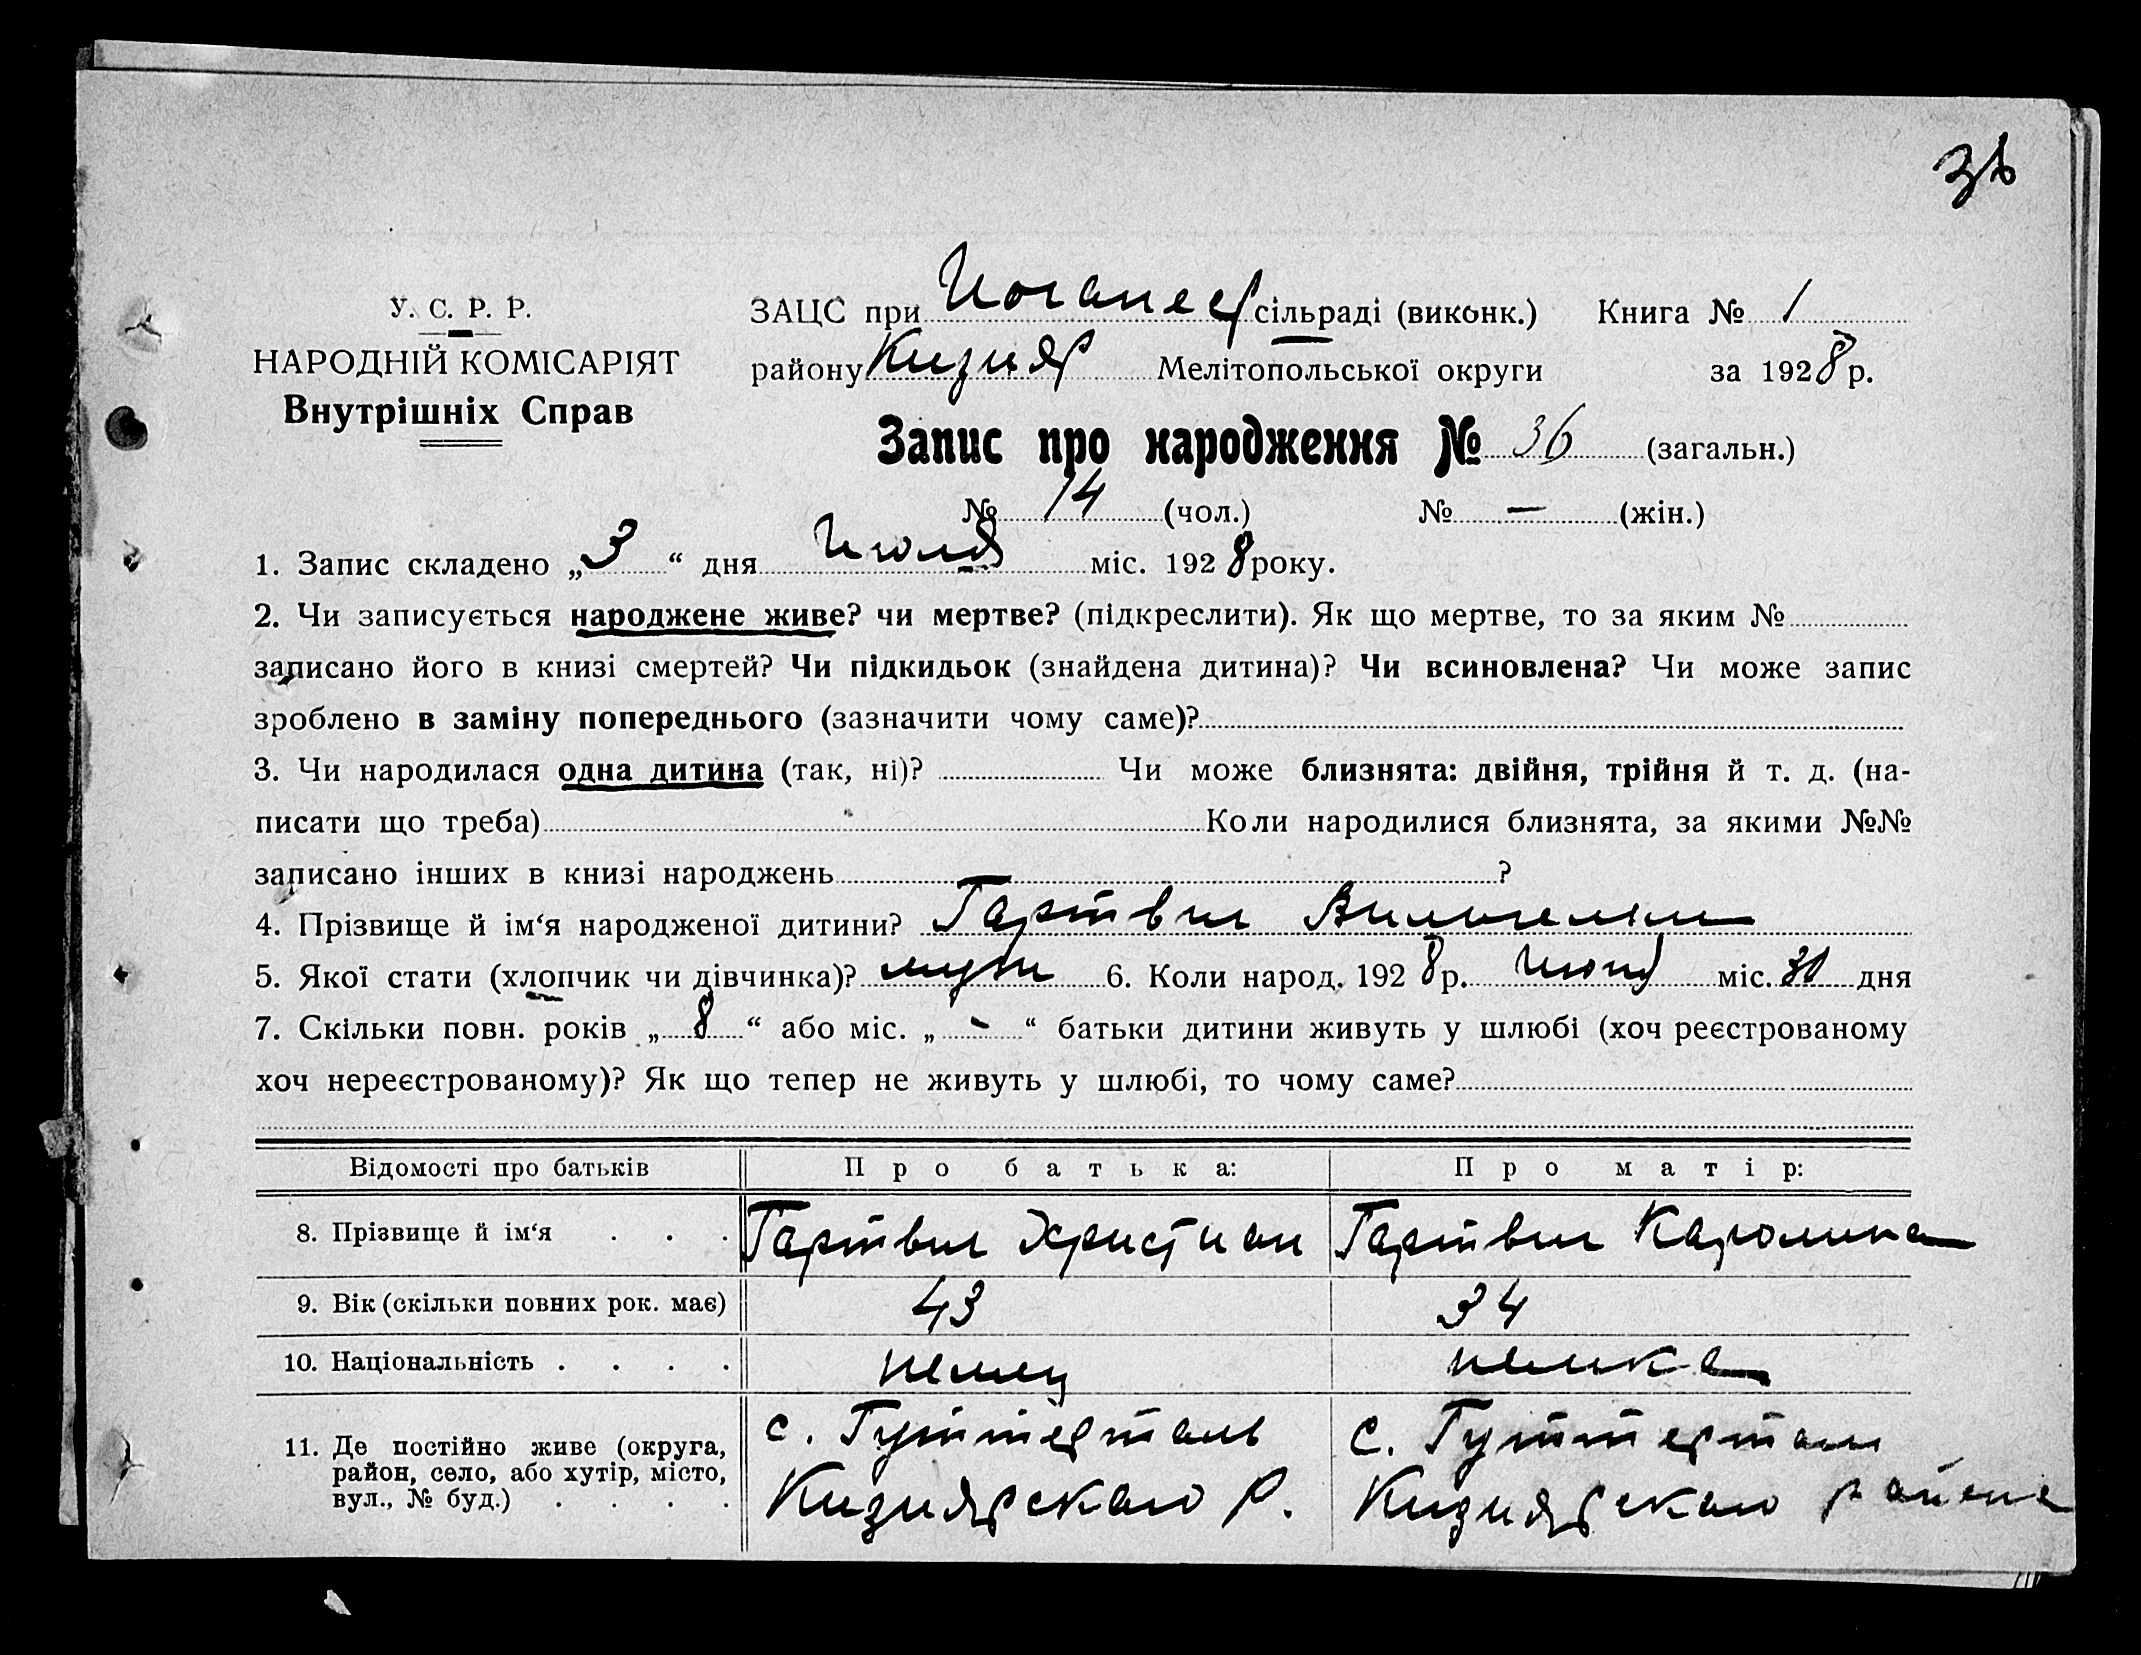 36
У. С. Р. Р.
НАРОДНІЙ КОМІСАРІЯТ
Внутрішніх Справ
ЗАЦС при Иоганес сільраді (виконк.) Книга № 1
району Кизияр Мелітопольської округи за 1928 р.
Запис про народження № 36 (загальн.)
№ 14 (чол.) № — (жін.)
1. Запис складено „3“ дня Июля міс. 1928 року.
2. Чи записується народжене живе? чи мертве? (підкреслити). Як що мертве, то за яким №
записано його в книзі смертей? Чи підкидьок (знайдена дитина)? Чи всиновлена? Чи може запис
зроблено в заміну попереднього (зазначити чому саме)?
3. Чи народилася одна дитина (так, ні)? Чи може близнята: двійня, трійня й т. д. (на-
писати що треба) Коли народилися близнята, за якими №№
записано інших в книзі народжень ?
4. Прізвище й ім‘я народженої дитини? Гартвиг Вильгельм
5. Якої стати (хлопчик чи дівчинка)? муж 6. Коли народ. 1928 р. Июня міс. 30 дня
7. Скільки повн. років „8“ або міс. „-“ батьки дитини живуть у шлюбі (хоч реєстрованому
хоч нереєстрованому)? Як що тепер не живуть у шлюбі, то чому саме?
Відомості про батьків Про батька: Про матір:
8. Прізвище й ім‘я . . . Гартвиг Християн Гартвиг Каролина
9. Вік (скільки повних рок. має) 43 34
10. Національність . . . . немец немка
11. Де постійно живе (округа,
район, село, або хутір, місто,
вул., № буд.) . . . .
с. Гуттерталь
Кизиярскаго р.
с. Гуттерталь
Кизиярскаго района